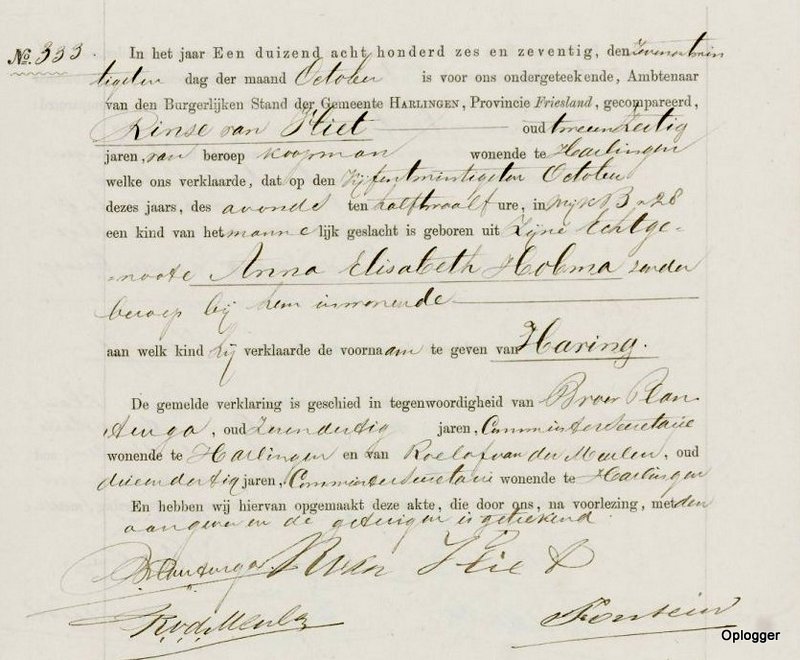 No. 333. In het jaar Een duizend acht honderd zes en zeventig, den Zevenentwin
tigsten dag der maand October is voor ons ondergeteekende, Ambtenaar
van den Burgerlijken Stand der Gemeente HARLINGEN, Provincie Friesland, gecompareerd,
Rinse van Fliet oud tweeenzestig
jaren, van beroep koopman wonende te Harlingen
welke ons verklaarde, dat op den Vijfentwintigsten October
dezes jaars, des avonds ten half twaalf ure, in wijk B n 28
een kind van het mannelijk geslacht is geboren uit Zijne Echtge-
noote Anna Elisabeth Hobma zonder
beroep bij hem inwonende
aan welk kind hij verklaarde de voornaam te geven van Haring.
De gemelde verklaring is geschied in tegenwoordigheid van Broer Plan
tenga, oud Zevendertig jaren, Commies ter Secretarie
wonende te Harlingen en van Roelof van der Meulen, oud
drieendertig jaren, Commies ter Secretarie wonende te Harlingen
En hebben wij hiervan opgemaakt deze akte, die door ons, na voorlezing, met den
aangever en de getuigen is geteekend.
B Plantenga R van Fliet
R. v. d. Meulen Fontein
Oplogger